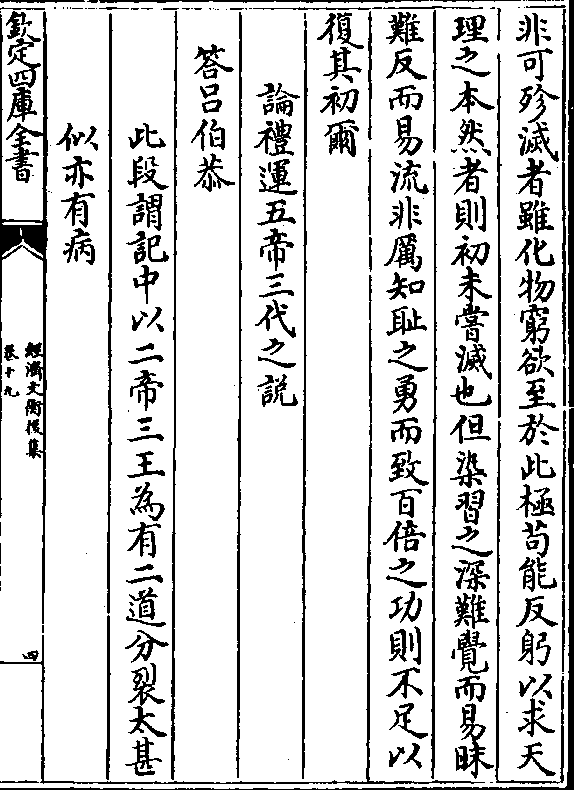 非可殄滅者雖化物窮欲至於此極苟能反躬以求天
理之本然者則初未嘗滅也但染習之深難覺而易昧
難反而易流非厲知耻之勇而致百倍之功則不足以
復其初爾
論禮運五帝三代之説
答呂伯恭
此段謂記中以二帝三王為有二道分裂太甚
似亦有病
欽定四庫全書
經濟文衡後集
卷十九
四